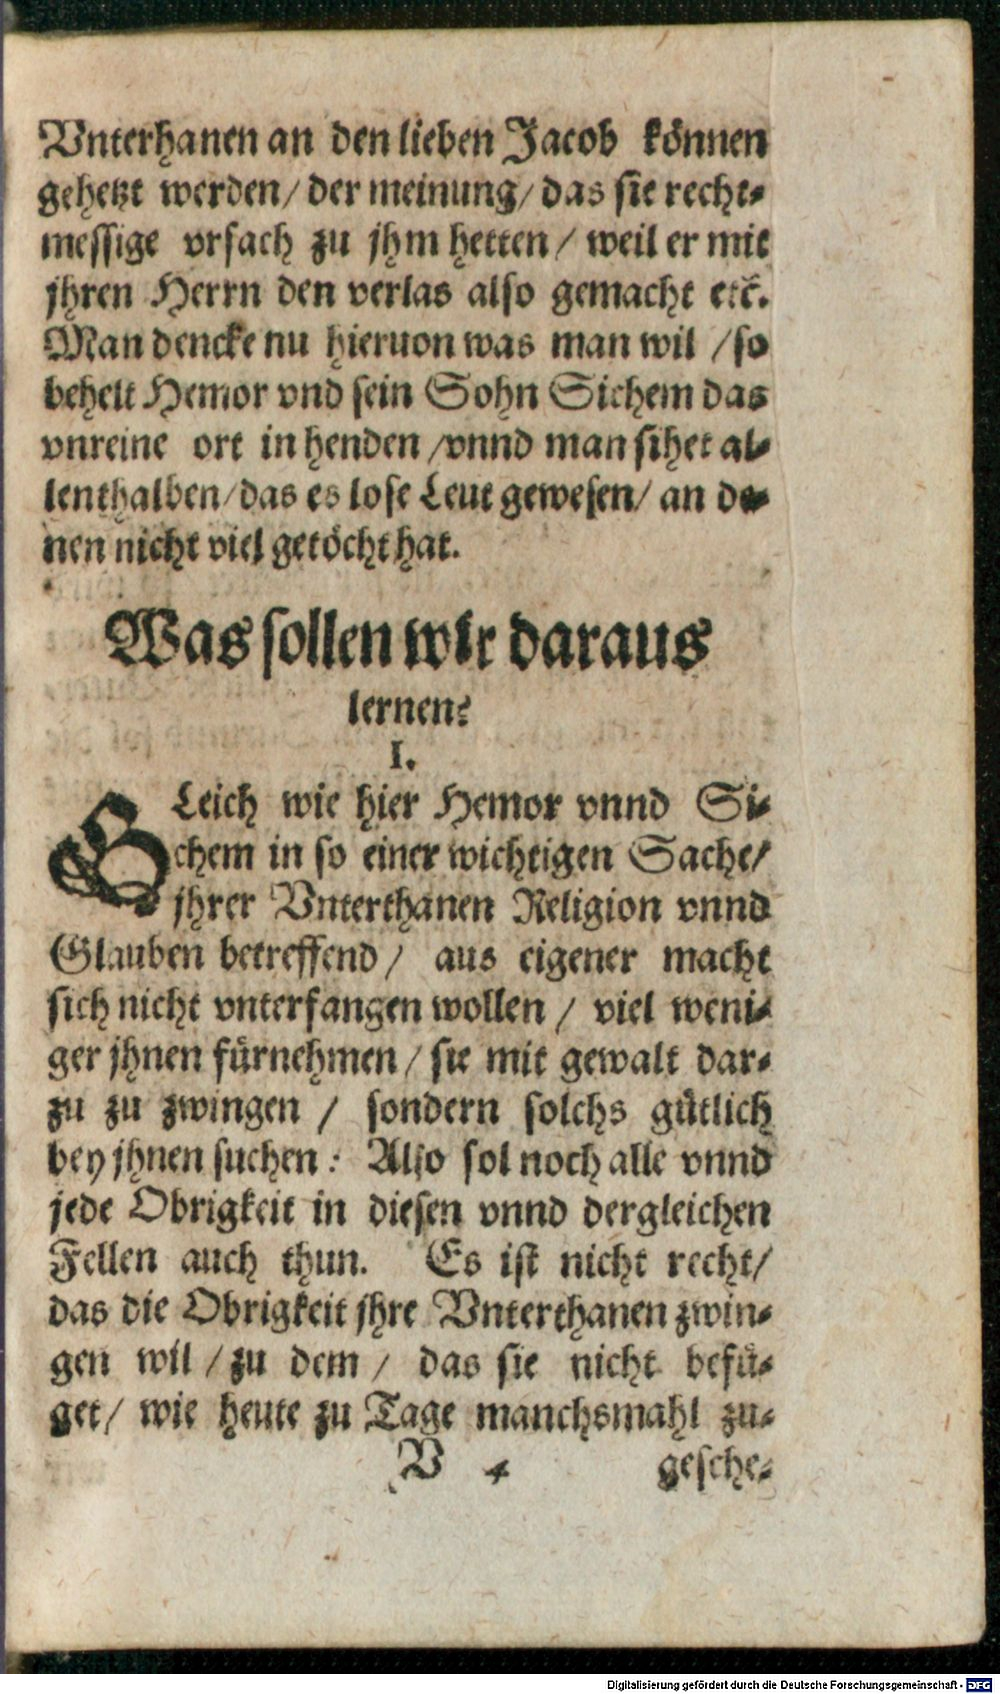 Vnterhanen an den lieben Jacob können
gehetzt werden / der meinung / das sie recht-
messige vrsach zu jhm hetten / weil er mit
jhren Herrn den verlas also gemacht etc̃.
Man dencke nu hieruon was man wil / so
behelt Hemor vnd sein Sohn Sichem das
vnreine ort in henden / vnnd man sihet al-
lenthalben / das es lose Leut gewesen / an de-
nen nicht viel getöcht hat.
Was sollen wir daraus
lernen?
I.
GLeich wie hier Hemor vnnd Si-
chem in so einer wichtigen Sache /
jhrer Vnterthanen Religion vnnd
Glauben betreffend / aus eigener macht
sich nicht vnterfangen wollen / viel weni-
ger jhnen fürnehmen / sie mit gewalt dar-
zu zu zwingen / sondern solchs gütlich
bey jhnen suchen : Also sol noch alle vnnd
jede Obrigkeit in diesen vnnd dergleichen
Fellen auch thun. Es ist nicht recht /
das die Obrigkeit jhre Vnterthanen zwin-
gen wil / zu dem / das sie nicht befü-
get / wie heute zu Tage manchsmahl zu-
V 4 gesche-
Digitalisierung gefördert durch die Deutsche Forschungsgemeinschaft - DFG